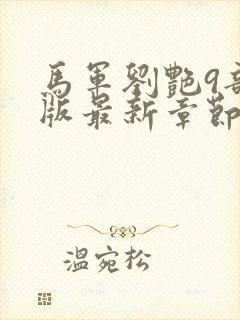 馬軍劉艷9部
版最新章節
溫宛松